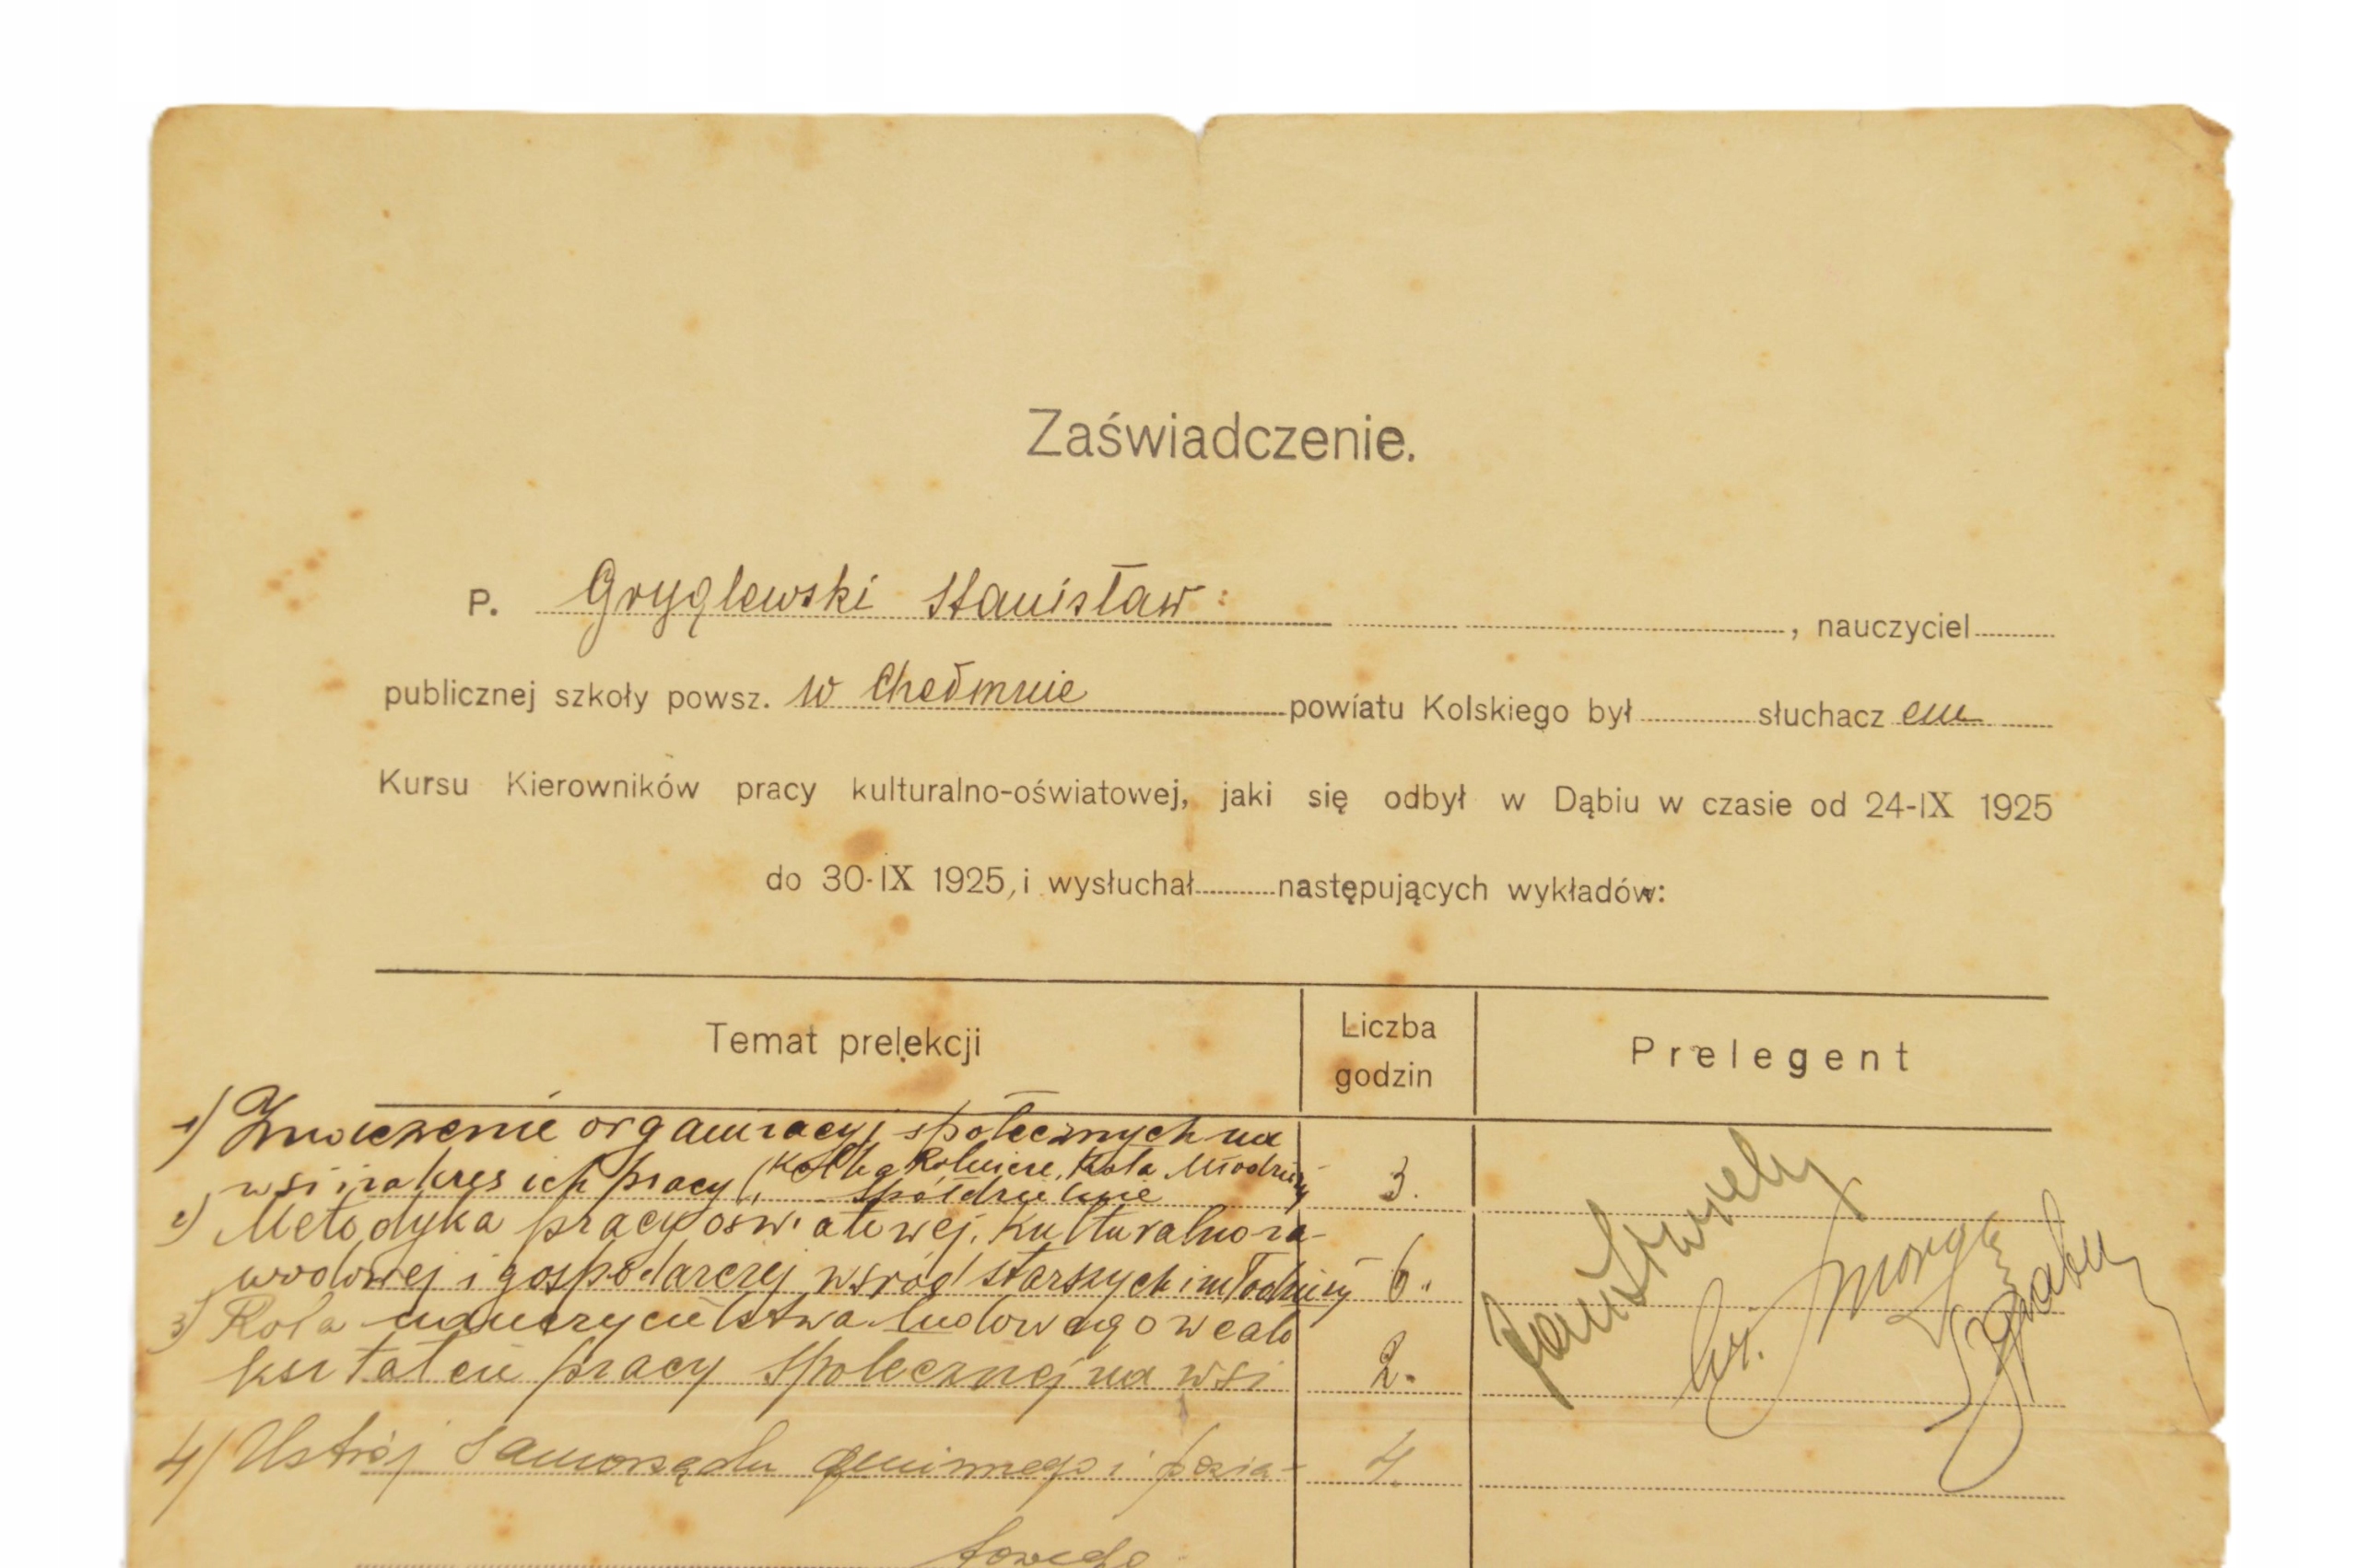 Zaświadczenie.
P. Gryglewski Stanisław: , nauczyciel
publicznej szkoły powsz. w Chełmnie powiatu Kolskiego był słuchacz em
Kursu Kierowników pracy kulturalno-oświatowej, jaki się odbył w Dąbiu w czasie od 24-IX 1925
do 30-IX 1925, i wysłuchał następujących wykładów:
Temat prelekcji Liczba godzin Prelegent
1) Znaczenie organizacyj społecznych na
wsi i zakres ich pracy (Kółka Rolnicze, Koła Młodzieży 3.
Spółdzielnie
2) Metodyka pracy oświatowej, kulturalno za-
wodowej i gospodarczej wśród starszych i młodzieży 6.
3) Rola nauczycielstwa ludowego w cało
kształcie pracy społecznej na wsi 2.
4) Ustrój Samorządu gminnego i powia- 4.
towego